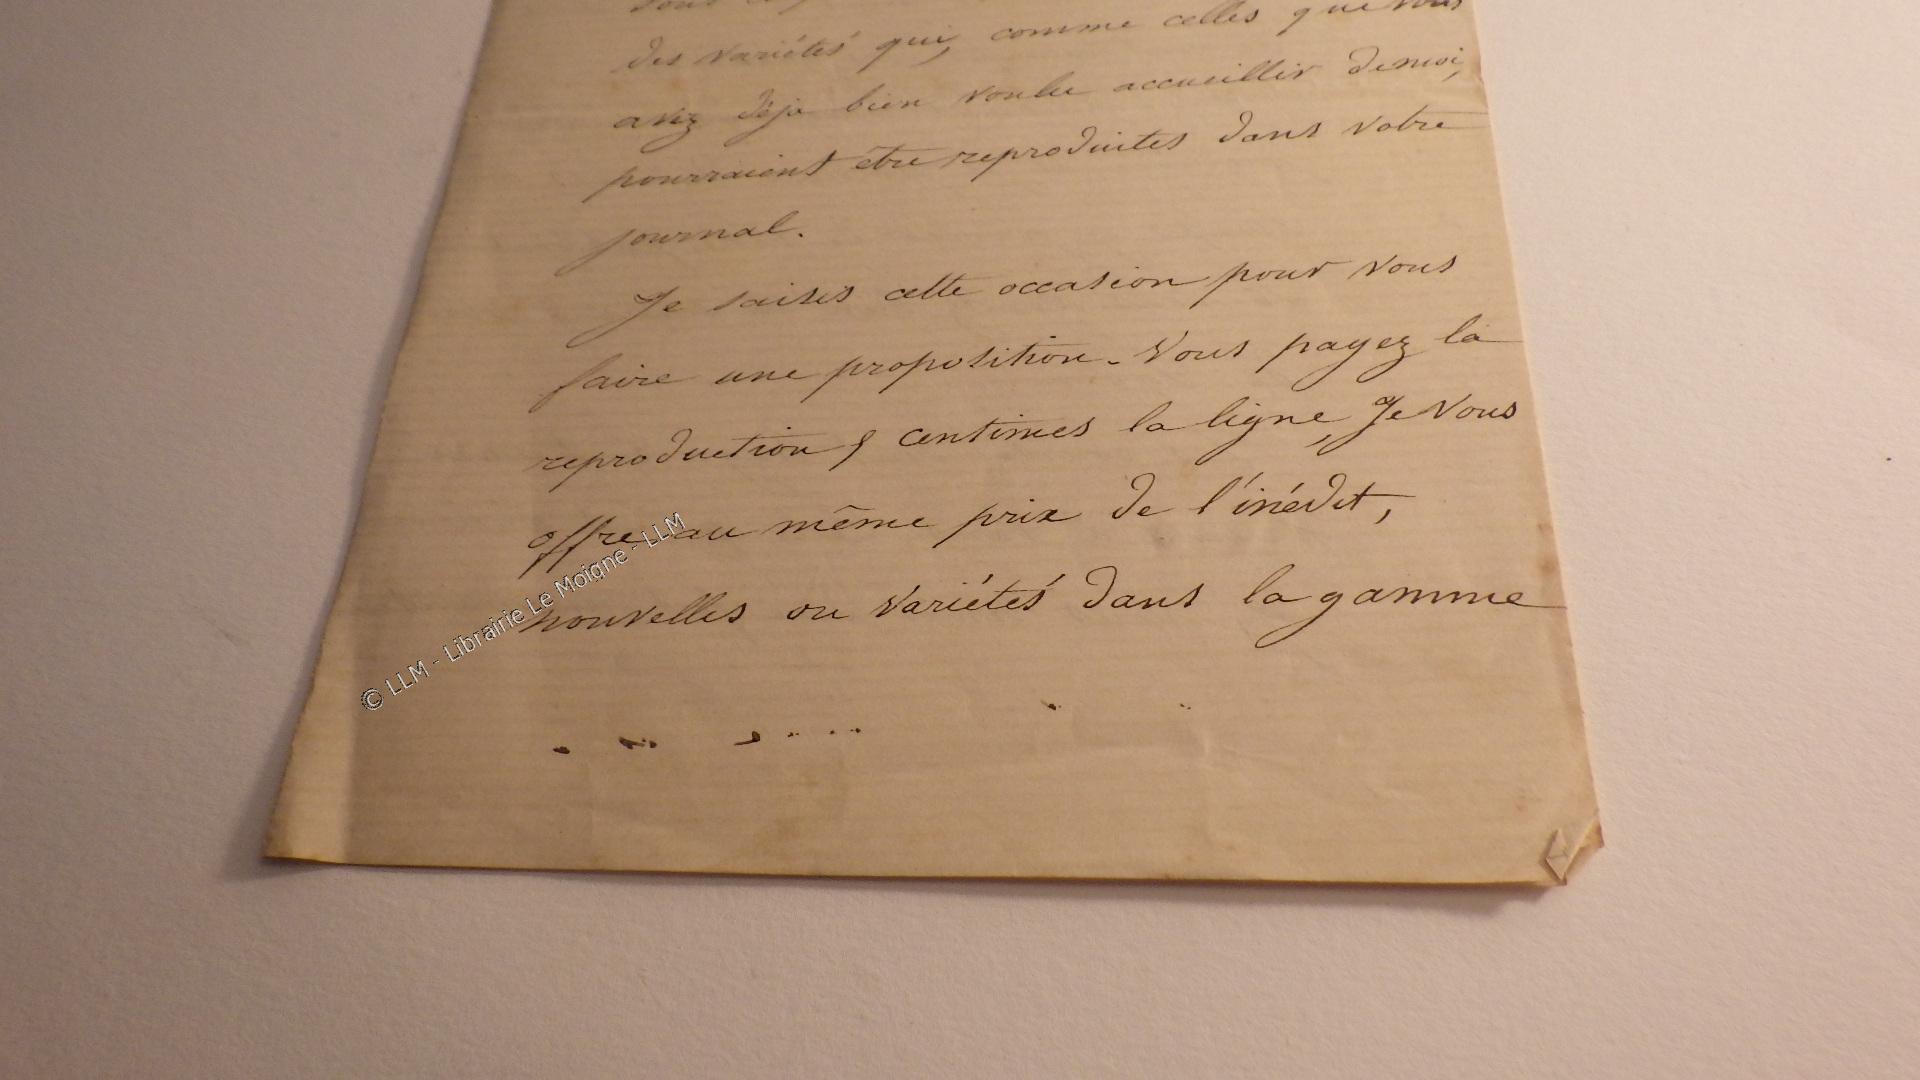 des variétés qui, comme celles que vous
avez déjà bien voulu accueillir de moi,
pourraient être reproduites dans votre
journal.
Je saisis cette occasion pour vous
faire une proposition. Vous payez la
reproduction 5 centimes la ligne, Je vous
offre au même prix de l'inédit,
nouvelles ou variétés dans la gamme
© LLM - Librairie Le Moigne - LLM